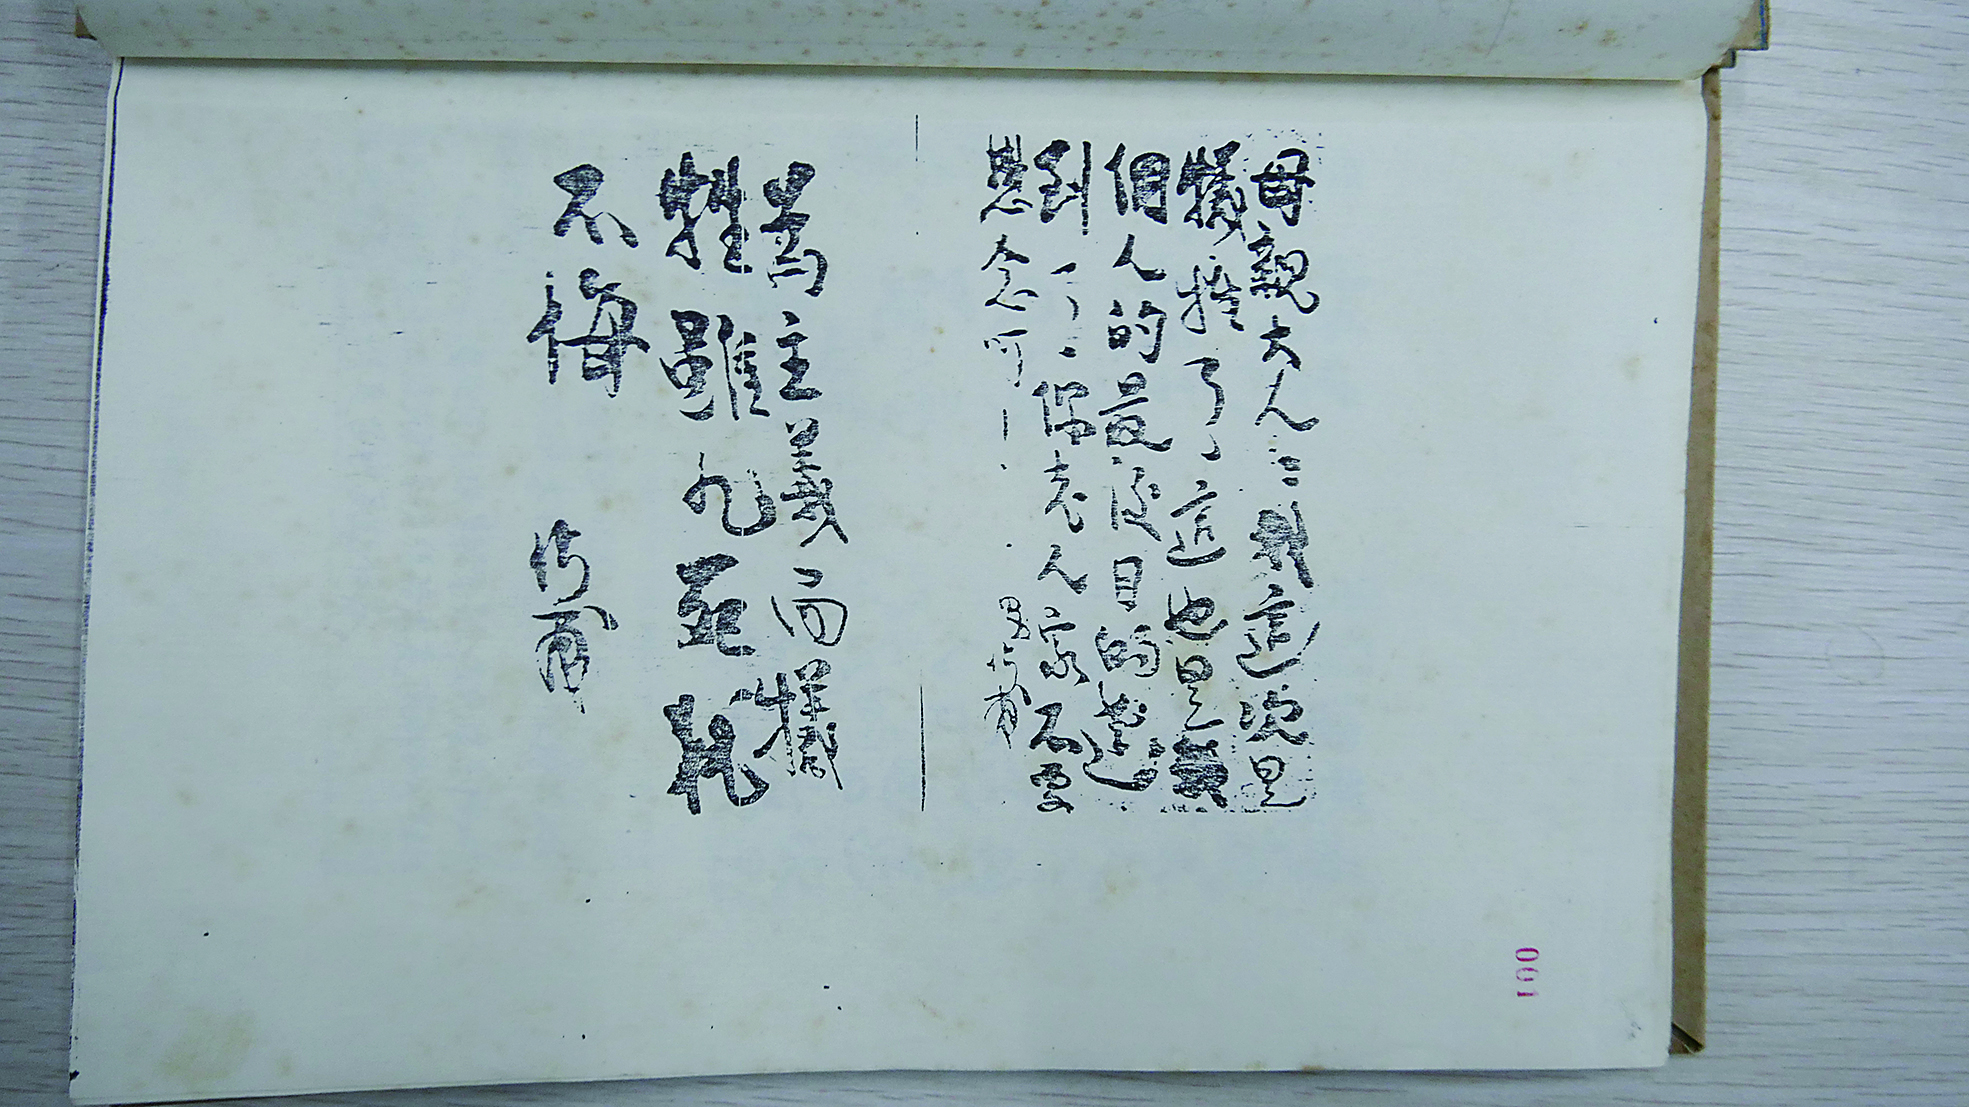 母親大人：我這次是
犧牲了，這也是我
個人的最後目的達
到了，你老人家不要
念呵！
男竹甫
為主義而犧
牲雖九死
不悔
竹甫
001